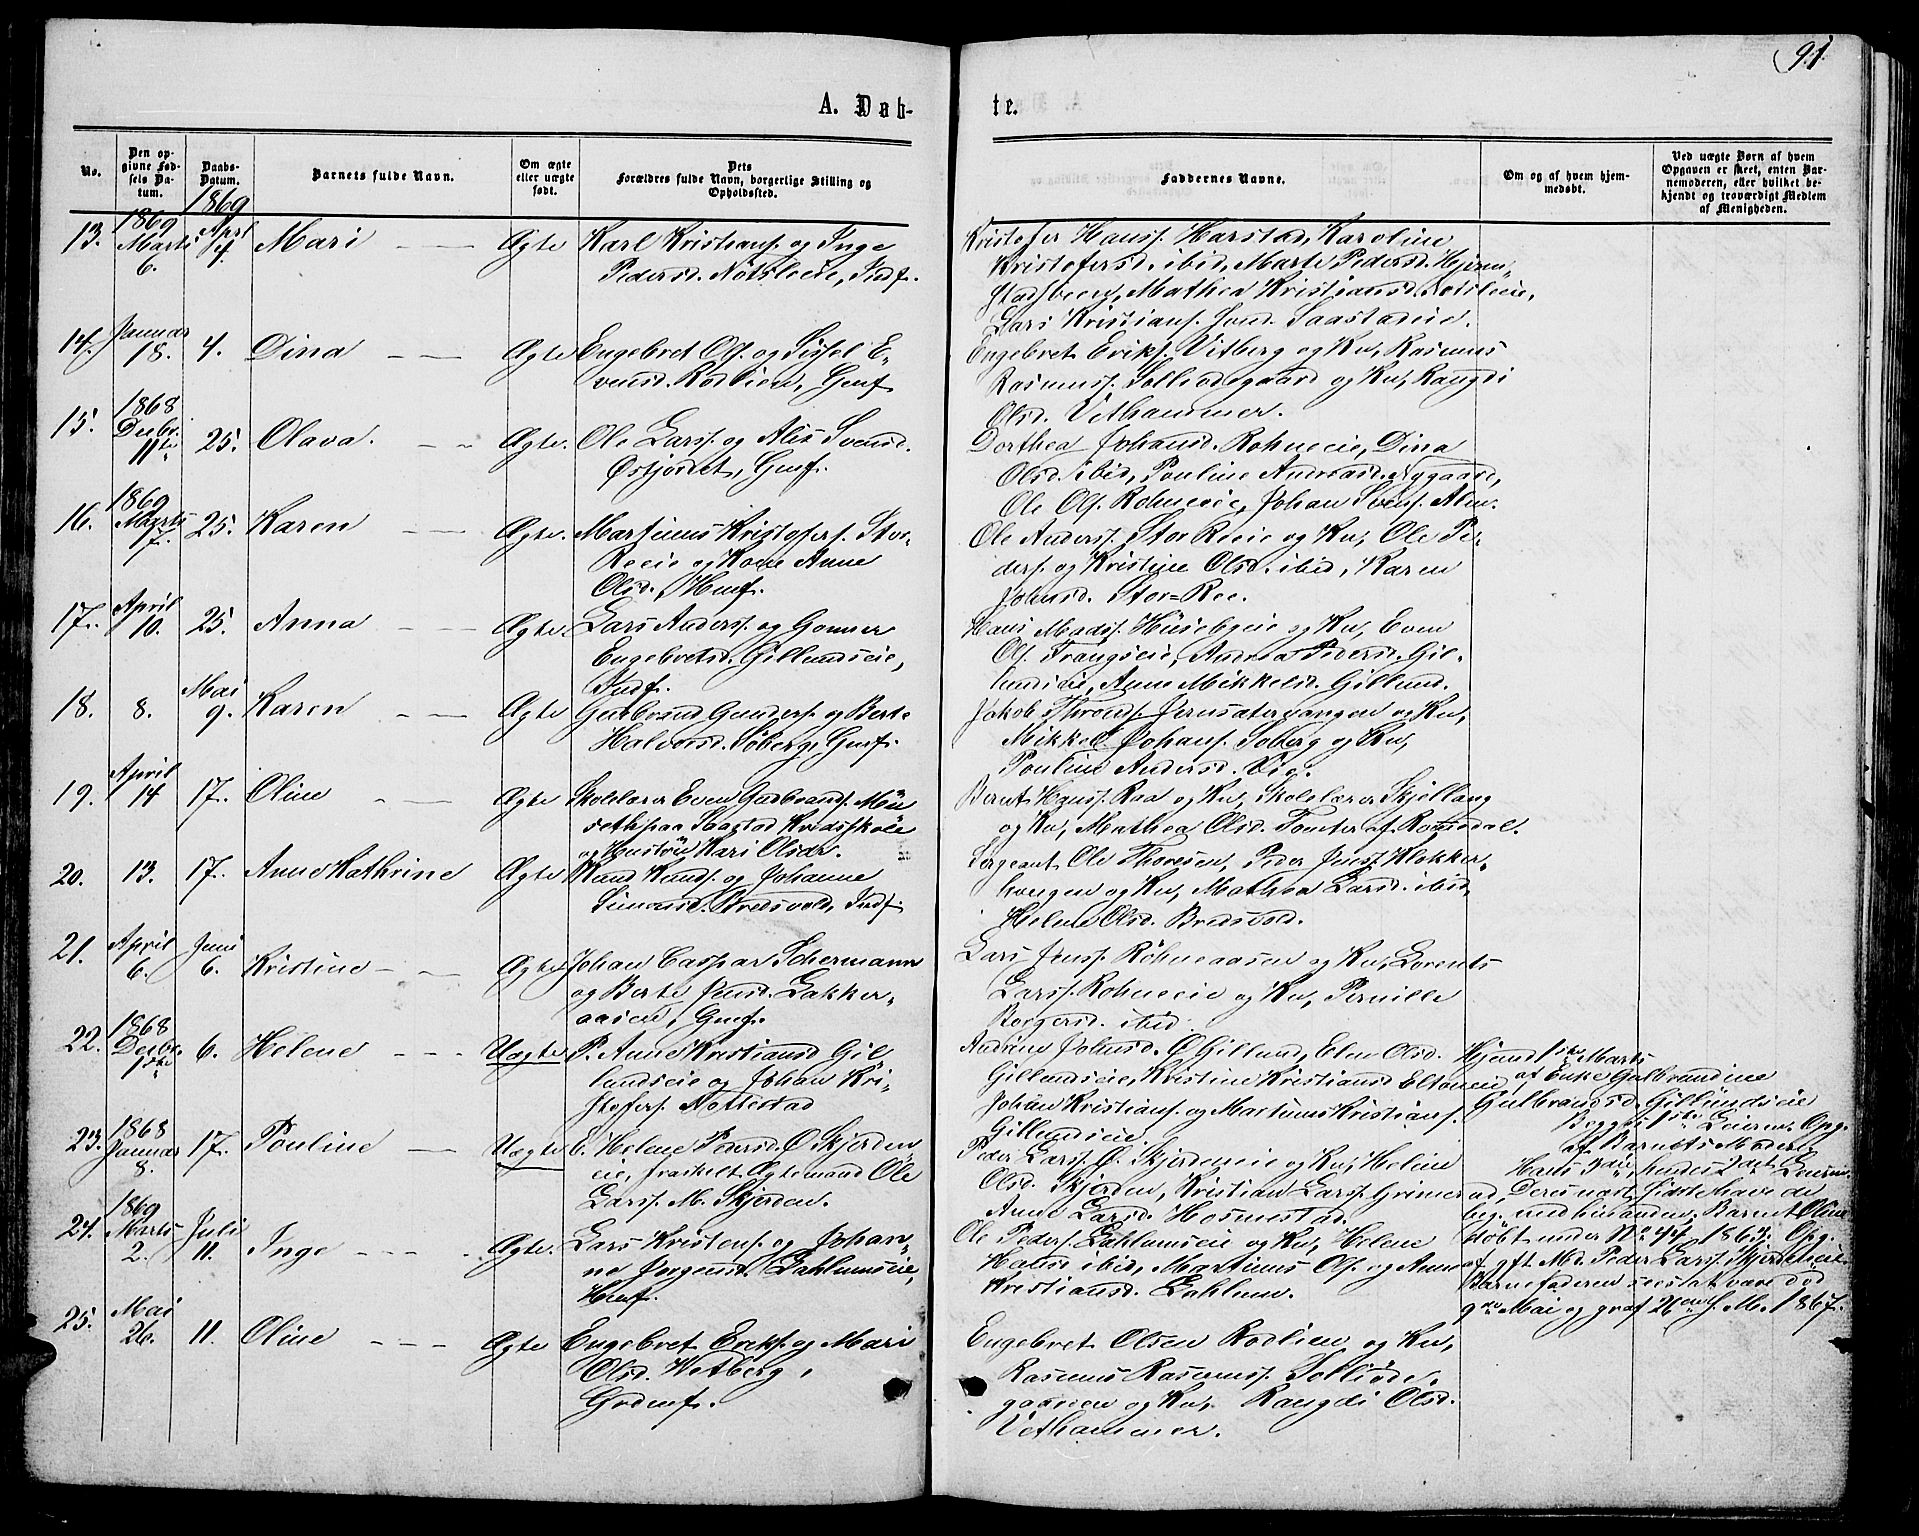 91.
A. Dåb-
te.
No.
Den op-
givne Fød-
sels Da-
tum.
Daabs-
Datum.
Barnets fulde Navn.
Om ægte
eller uægte
født.
Dets
Forældres fulde Navn, borgerlige Stilling og
Opholdssted.
Faddernes Navne.
Om og af hvem hjem-
medøbt.
Ved uægte Børn af hvem
Opgaven er skeet, enten Bar-
nemoderen, eller hvilket be-
kjendt og troværdigt Medlem
af Menigheden.
1869
13. 1869 Marts 6. Apri 4. Mari Ægte Karl Kristians. og Inge
Pedersd. Nötsleeie, Indf.
Kristofer Hanss. Harstad, Karoline
Kristofersd. ibid, Marte Pedersd. Hjem-
stadsbeeg, Mathea Kristiansd. Nötsleeie,
Lars Kristians. Saastadeie.
14. Januar 18. 4. Dina Ægte Engebret Ols. og Sissel E-
vensd. Rodlien, Gmf.
Engebret Eriks. Vitberg og Ku, Rasmus
Rasmuss. Solliödegaard og Ku, Rangdi
Olsd. Vethammer.
15. 1868 Decbr. 11te 25. Olava. Ægte. Ole Larss. og Alis Svensd.
Östjordet, Gmf.
Dorthea Johansd. Rohneeie, Dina
Olsd. ibid, Pouline Andreasd. Nygaard,
Ole Ols. Rohneeie, Johan Svens. Alm.
16. 1869 Marts 17. 25. Karen Ægte. Martinus Kristofers. Stor-
Reeie og Kone Anne
Olsd. Hmf.
Ole Anderss. Stor Reeie og Ku, Ole Pe-
ders. og Kristine Olsd. ibid, Karen
Johnsd. Stor=Ree.
17. April 10. 25. Anna Ægte Lars Anderss. og Gonner
Engebretsd. Gillundseie,
Indf.
Hans Madss. Hüsebyeie og Ku, Even
Ols. Trangseie, Andrea Pedersd. Gil-
lundseie, Anne Mikkelsd. Gillund.
18. 8. Mai 9. Karen Ægte Gulbrand Gunders. og Berte
Halvorsd. Soberg, Gmf.
Jakob Thronds. Jensætervangen og Ku,
Mikkel Johans. Soberg og Ku,
Pouline Andersd. Vig.
19. April 14 17. Oline Ægte Skolelærer Even Gudbrands. Möi
seth paa Saastad Kredsskole
og Hustru Kari Olsdr.
Bernt Hanss. Raa og Ku, Skolelærer Skjellang
og Ku, Mathea Olsd. Tomter af Romedal.
20. 13. 17. Anne Kathrine Ægte Knud Knuds. og Johanne
Simensd. Bredsvold, Indf.
Sergeant Ole Thoresen, Peder Jenss. Klokker-
hougen og Ku, Mathea Larsd. ibid,
Helene Olsd. Bredsvold.
21. April 6. Juni 6. Kristine Ægte Johan Caspar Schermann
og Berte Jensd. Lakker-
aasen, Gmf.
Lars Jenss. Röhneaasen og Ku, Lorents
Larss. Rohneeie og Ku, Pernille
Borgersd. ibid.
22. 1868 Decbr. 1ste 6. Helene Uægte P. Anne Kristiansd Gil
lundseie og Johan Kri-
stofers. Nottestad
Andrine Johnsd. Ö Gillund, Elen Olsd.
Gillundseie, Kristine Kristiansd Eltoneie,
Johan Kristians. og Martinus Kristians.
Gillundseie.
Hjemd 1ste Marts
af Enke Gulbrandine
Gulbrandsd. Gillundseie
Begges 1ste Leierm, Opg.
af Barnets Moder.
23. 1868 Januar 8. 17. Pouline Uægte E. Helene Pedersd. Ö Skjerden
eie, fraskilt Ægtemand Ole
Larss. M. Skjerden.
Peder Larss. Ö. Skjerdeneie og Ku, Helene
Olsd. Skjerden, Kristian Larss. Grimer
Anne Larsd. Hosmestad.
Hans 3die hendes 2det Leierm
ad, Deres næst sidste have de
beg. med hinanden, Barnet Oline
döbt under No 44, 1863. Opg.
af gft Md. Peder Larss. Skjerdeneie.
Barnefaderen
9de Mai og graf 26de s. M. 1867.
24. 1869 Marts 2. Juli 11. Inge Ægte. Lars Kristens. og Johan-
ne Jörgensd. Dahlumseie,
Hmf.
Ole Peders. Dahlumseie og Ku, Helene
Hansd ibid, Martinus Ols. og Anne
Kristiansd. Dahlum.
25. Mai 26. 11. Oline Ægte Engebret Eriks. og Mari
Olsd. Wetberg,
Grdmf.
Engebret Olsen Rodlien og Ku,
Rasmus Rasmuss. Solliöde-
gaarden og Ku, Rangdi Olsd.
Vethammer.